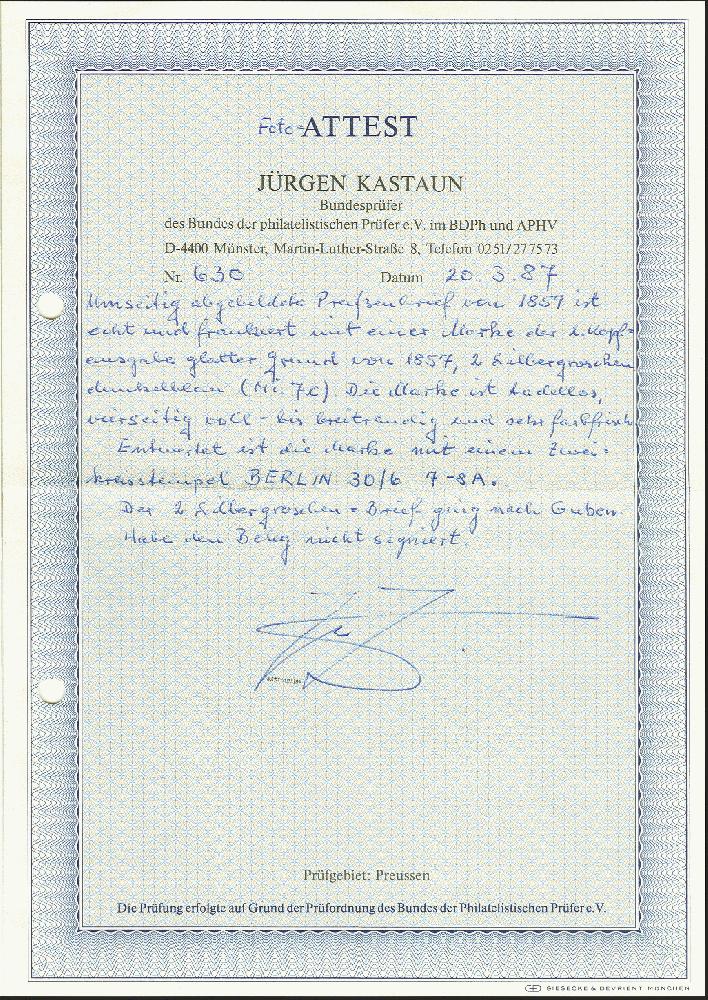 Foto-ATTEST
JÜRGEN KASTAUN
Bundesprüfer
des Bundes der philatelistischen Prüfer e.V. im BDPh und APHV
D-4400 Münster, Martin-Luther-Straße 8, Telefon 0251/277573
Nr. 630 Datum 20.3.87
Umseitig abgebildete Preußenbrief von 1857 ist
echt und frankiert mit einer Marke der 2. Kopf=
ausgabe glatter Grund von 1857, 2 Silbergroschen
dunkelblau (Mi. 7c) Die Marke ist tadellos,
vierseitig voll- bis breitrandig und sehr farbfrisch
Entwertet ist die Marke mit einem Zwei=
kreisstempel BERLIN 30/6 7-8A.
Der 2 Silbergroschen=Brief ging nach Guben.
Habe den Beleg nicht signiert.
Prüfgebiet: Preussen
Die Prüfung erfolgte auf Grund der Prüfordnung des Bundes der Philatelistischen Prüfer e.V.
GIESECKE & DEVRIENT MÜNCHEN